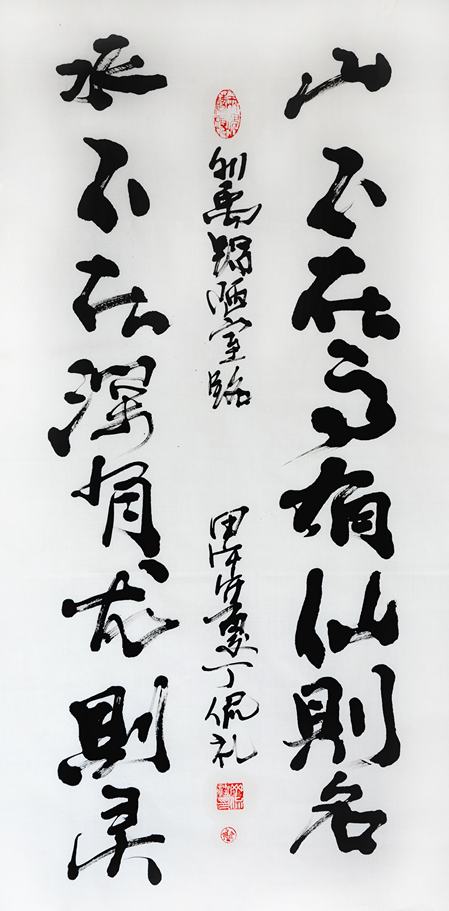 山不在高有仙則名
水不在深有龙則灵
刘禹锡陋室铭
甲午夏丁侃礼